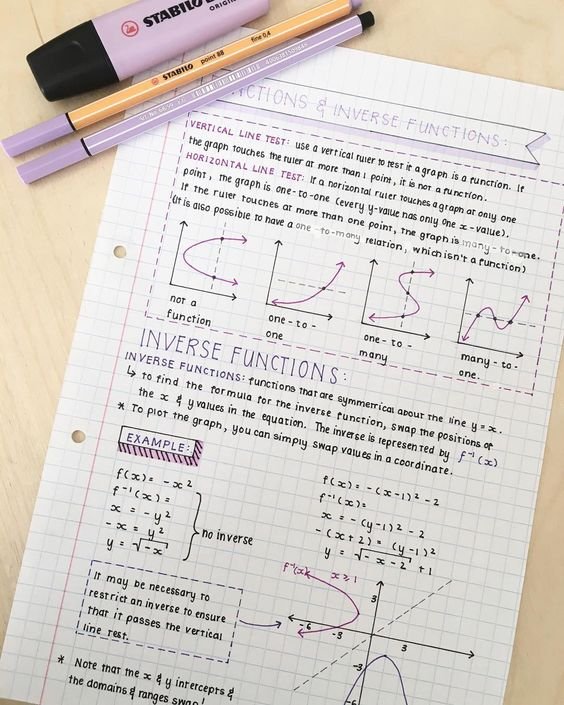 STABILO BOSS
ORIGINAL
STABILO point 88 fine 0,4
FUNCTIONS & INVERSE FUNCTIONS:
VERTICAL LINE TEST: use a vertical ruler to test if a graph is a function. If
the graph touches the ruler at more than 1 point, it is not a function.
HORIZONTAL LINE TEST: If a horizontal ruler touches a graph at only one
point, the graph is one-to-one (every y-value has only one x-value).
If the ruler touches at more than one point, the graph is many-to-one.
(It is also possible to have a one-to-many relation, which isn't a function)
not a
function
one-to-
one
one-to-
many
many-to-
one.
INVERSE FUNCTIONS:
INVERSE FUNCTIONS: functions that are symmetrical about the line y = x.
↳ to find the formula for the inverse function, swap the positions of
the x & y values in the equation. The inverse is represented by f⁻¹(x)
* To plot the graph, you can simply swap values in a coordinate.
EXAMPLE:
f(x) = -x²
f⁻¹(x) =
x = -y²
-x = y²
y = √-x
no inverse
f(x) = -(x-1)² - 2
f⁻¹(x) =
x = -(y-1)² - 2
-(x+2) = (y-1)²
y = √-x-2 + 1
It may be necessary to
restrict an inverse to ensure
that it passes the vertical
line test.
f⁻¹(x)
x ≥ 1
3
-6
-3
3
-3
-6
* Note that the x & y intercepts &
the domains & ranges swap!